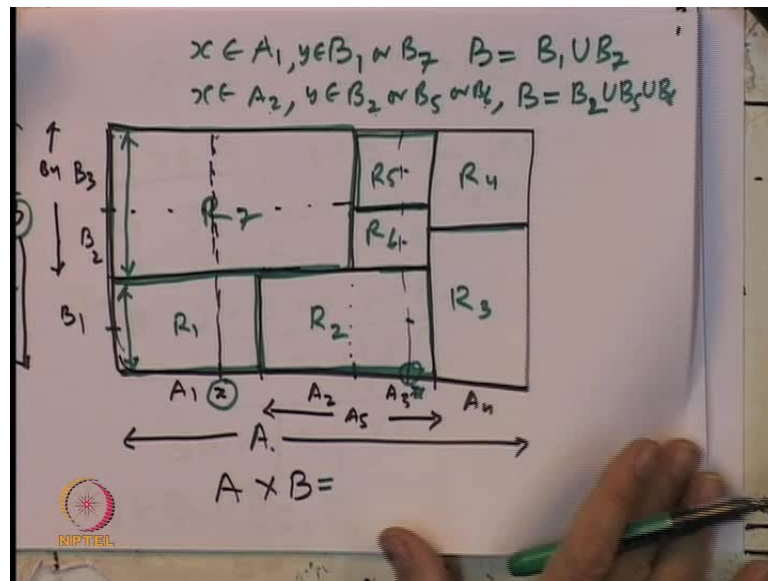 x ∈ A₁, y ∈ B₁ or B₇ B = B₁ ∪ B₇
x ∈ A₂, y ∈ B₂ or B₅ or B₆, B = B₂ ∪ B₅ ∪ B₆
B₄ B₃ R₅ R₄
R₇
B₂ R₆
B₁ R₁ R₂ R₃
A₁ x A₂ A₃ A₄
A₅
A.
A × B =
NPTEL